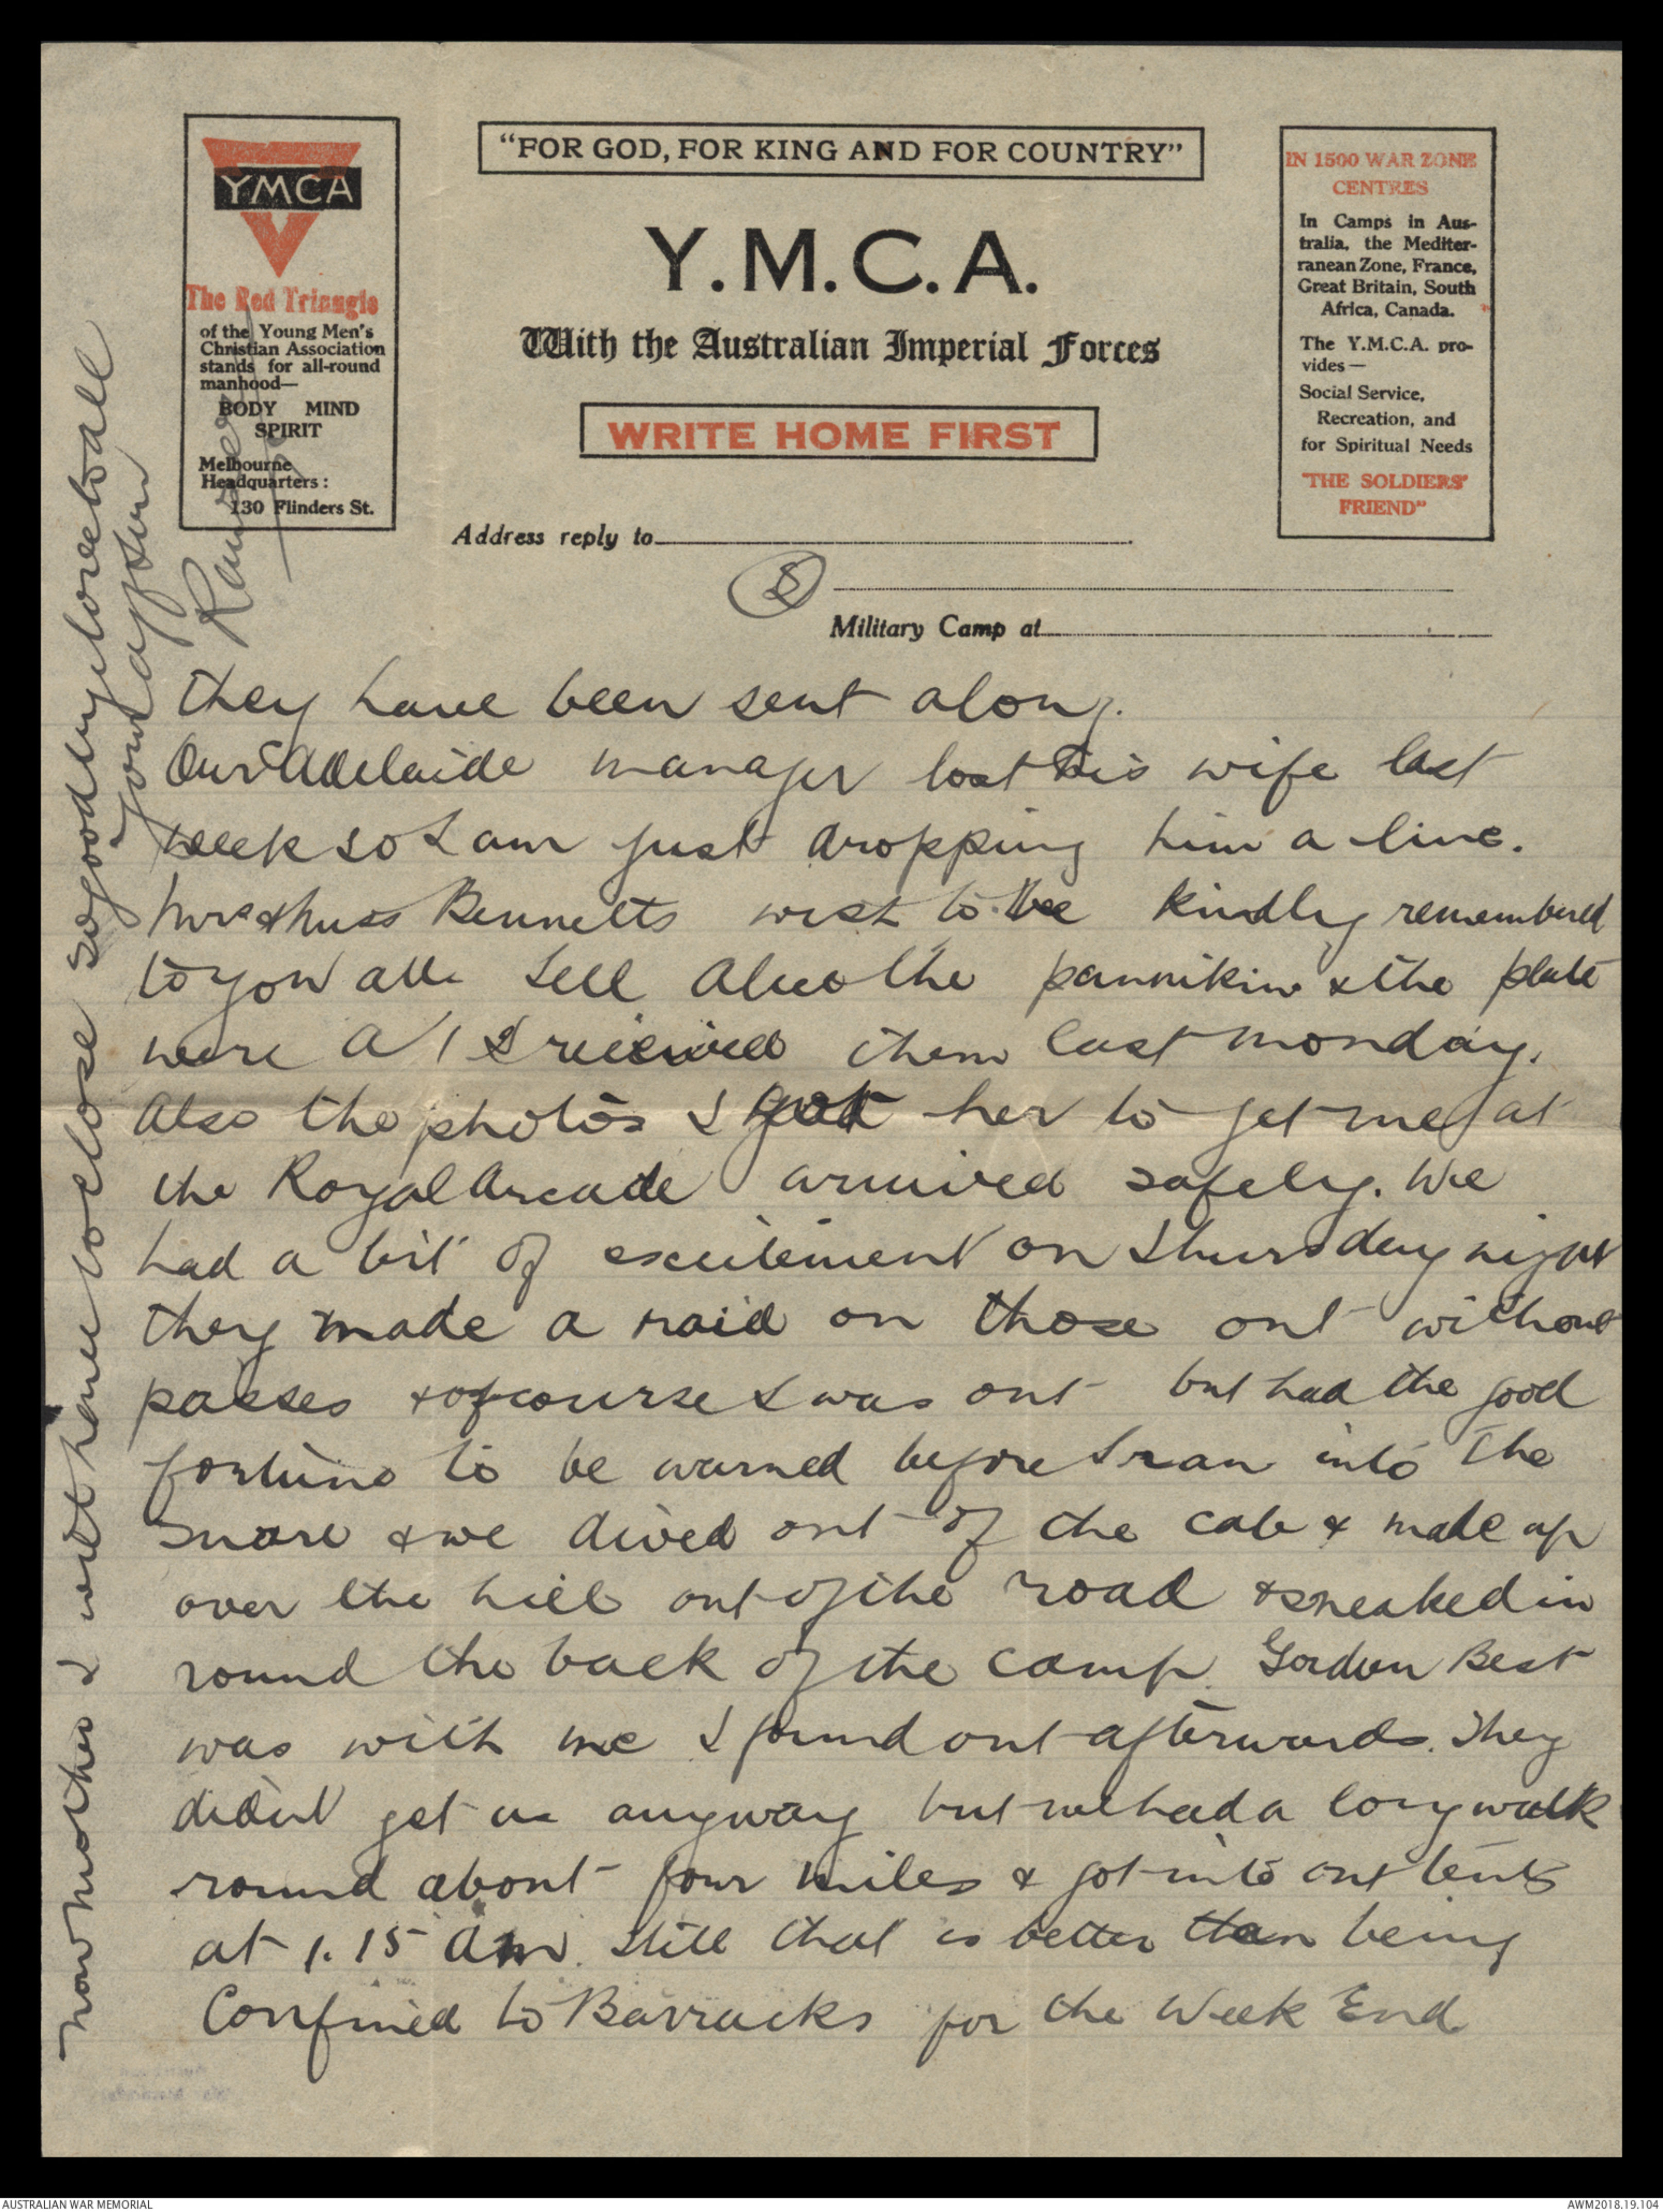 YMCA
The Red Triangle
of the Young Men's
Christian Association
stands for all-round
manhood—
BODY MIND
SPIRIT
Melbourne
Headquarters :
130 Flinders St.
"FOR GOD, FOR KING AND FOR COUNTRY"
Y.M.C.A.
With the Australian Imperial Forces
WRITE HOME FIRST
IN 1500 WAR ZONE
CENTRES
In Camps in Aus-
tralia, the Mediter-
ranean Zone, France,
Great Britain, South
Africa, Canada.
The Y.M.C.A. pro-
vides—
Social Service,
Recreation, and
for Spiritual Needs
"THE SOLDIERS'
FRIEND"
Address reply to
Military Camp at
they have been sent along.
Our Adelaide manager lost his wife last
week so I am just dropping him a line.
Mrs & Miss Bennetts wish to be kindly remembered
to you all. Tell Alice the pannikin & the plate
were A/1 I received them last Monday.
Also the photos I got her to get me at
the Royal Arcade arrived safely. We
had a bit of excitement on Thursday night
they made a raid on those out without
passes & of course I was out but had the good
fortune to be warned before I ran into the
snare & we dived out of the cab & made up
over the hill out of the road & sneaked in
round the back of the camp. Gordon Best
was with me I found out afterwards. They
didn't get us anyway but we had a long walk
round about four miles & got into our tents
at 1.15 am. Still that is better than being
Confined to Barracks for the Week End
now mother I will have to close so goodbye love to all
Your aff Son